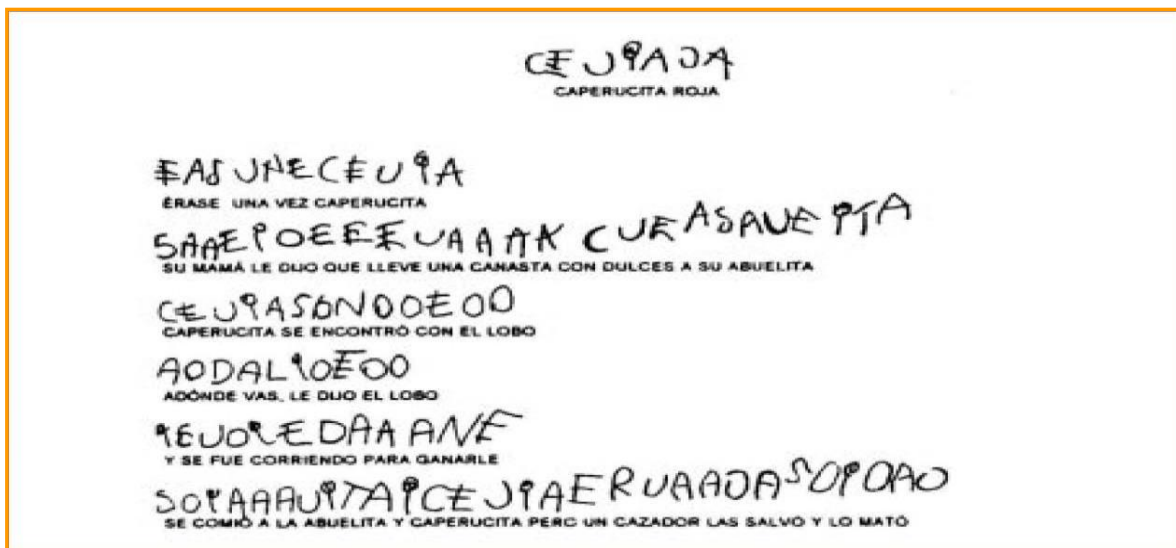 CEUIAJA
CAPERUCITA ROJA
EASUNECEUIA
ÉRASE UNA VEZ CAPERUCITA
SAAEIOEEEUAAAA CUEASAUEITA
SU MAMÁ LE DIJO QUE LLEVE UNA CANASTA CON DULCES A SU ABUELITA
CEUIASONDOEOO
CAPERUCITA SE ENCONTRÓ CON EL LOBO
AODALIOEOO
ADÓNDE VAS, LE DIJO EL LOBO
IEUOIEDAAANE
Y SE FUE CORRIENDO PARA GANARLE
SOIAAAUITAICEUIAERUAAOASOIOAO
SE COMIÓ A LA ABUELITA Y CAPERUCITA PERO UN CAZADOR LAS SALVÓ Y LO MATÓ